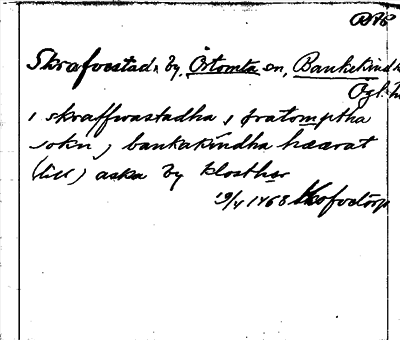 Skrafvestad, by, Örtomta sn, Bankekind
Ögl.
i skraffwastadha i øratomptha
sokn, bankakindha hæærat
(till) aska by kloster
19/4 1468 Skofvetorp